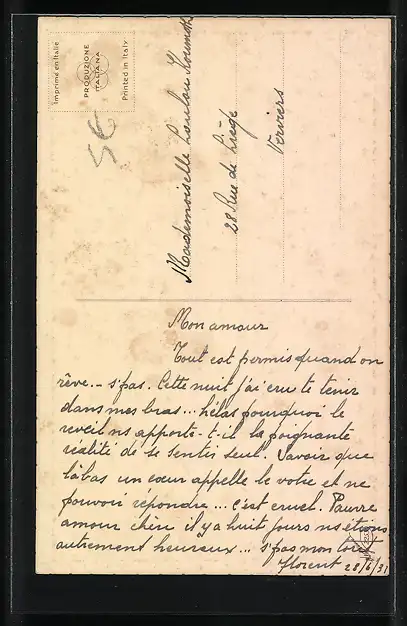 Imprimé en Italie
PRODUZIONE
ITALIANA
Printed in Italy
5€
Mademoiselle Loulou
28 Rue de Liège
Verviers
Mon amour
Tout est permis quand on
rêve... s'pas. Cette nuit j'ai cru te tenir
dans mes bras... hélas pourquoi le
reveil ns apporte-t-il la poignante
réalité de se sentir seul. Savoir que
là bas un cœur appelle le votre et ne
pouvoir répondre... c'est cruel. Pauvre
amour chéri il y a huit jours ns étions
autrement heureux... s'pas mon tout
Florent 28/6/31